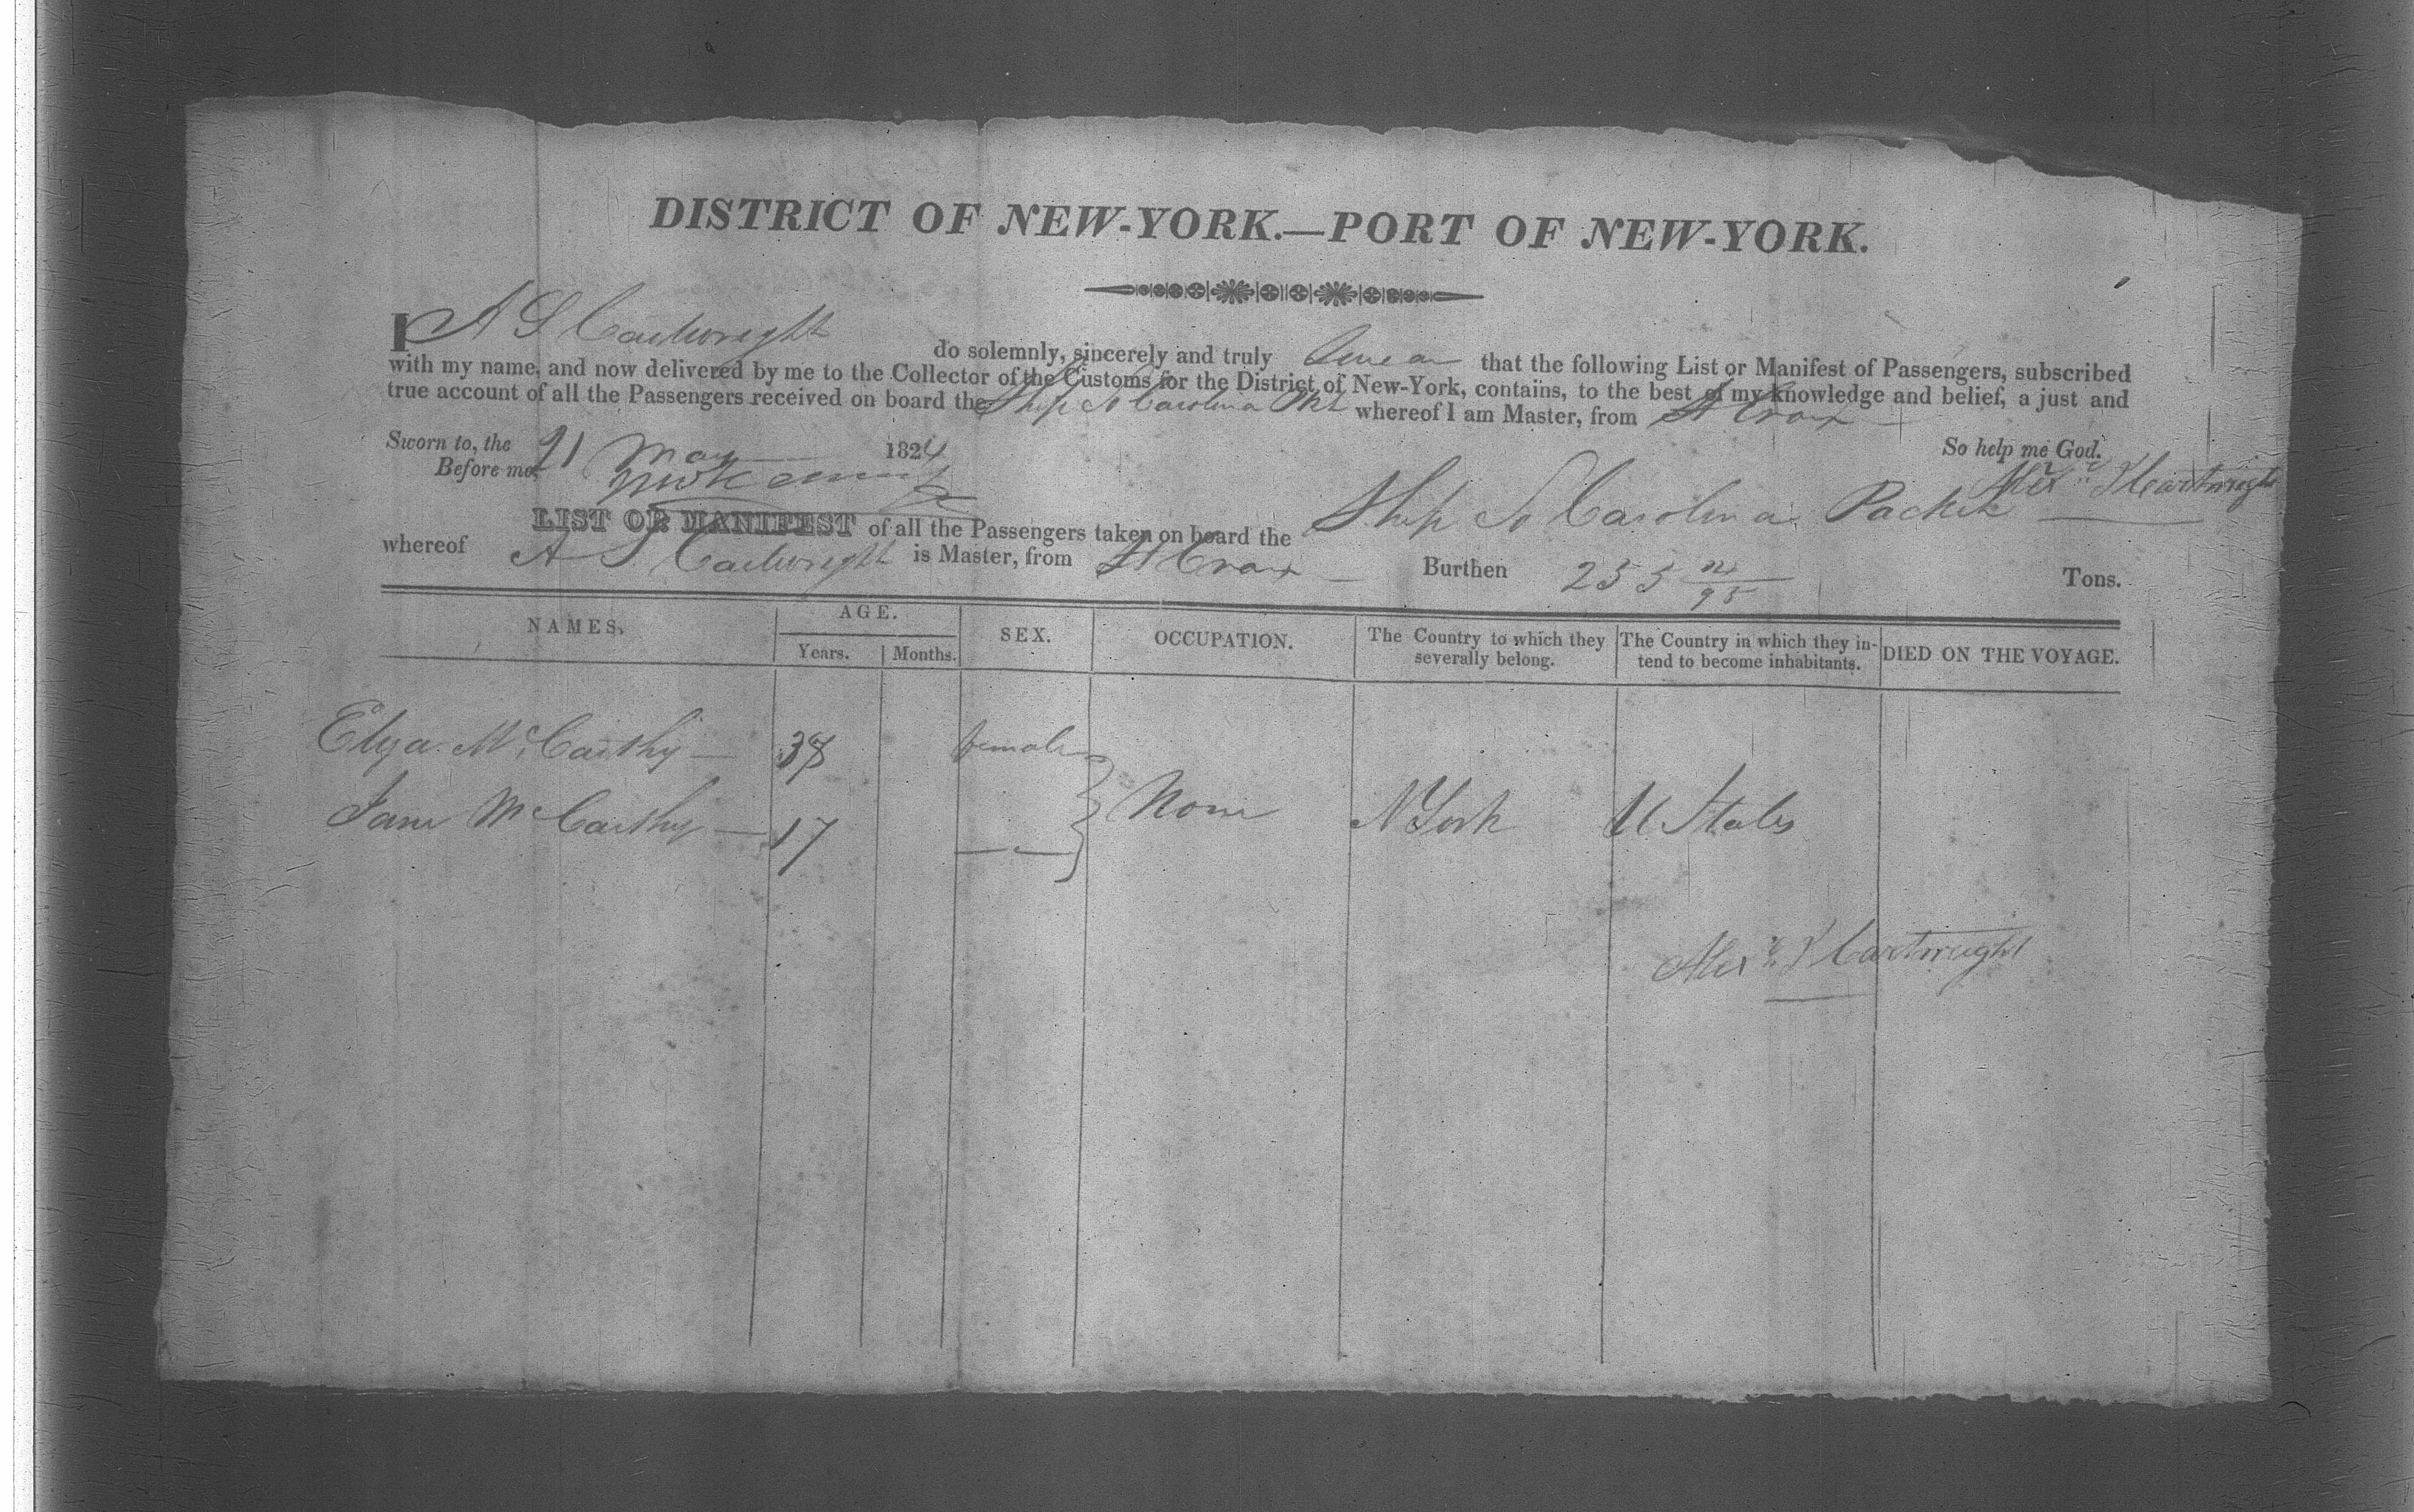 DISTRICT OF NEW-YORK.—PORT OF NEW-YORK.
I A S Cartwright do solemnly, sincerely and truly swear that the following List or Manifest of Passengers, subscribed
with my name, and now delivered by me to the Collector of the Customs for the District of New-York, contains, to the best of my knowledge and belief, a just and
true account of all the Passengers received on board the Ship So Carolina Pkt whereof I am Master, from St Croix
So help me God.
Sworn to, the 21 May 1824
Before me,
Alexr J Cartwright
LIST OR MANIFEST of all the Passengers taken on board the Ship So Carolina Packet
whereof A S Cartwright is Master, from St Croix Burthen 255 /95 Tons.
NAMES. AGE. SEX. OCCUPATION. The Country to which they severally belong. The Country in which they intend to become inhabitants. DIED ON THE VOYAGE.
Years. Months.
Elyza McCarthy 38 female
Jane McCarthy 17 — " — None N York U States
Alexr J Cartwright